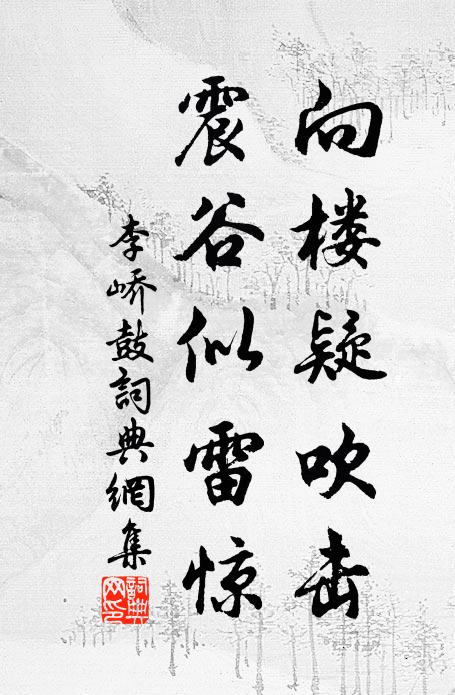 向楼疑吹击
震谷似雷惊
李峤鼓詞典網集
詞典